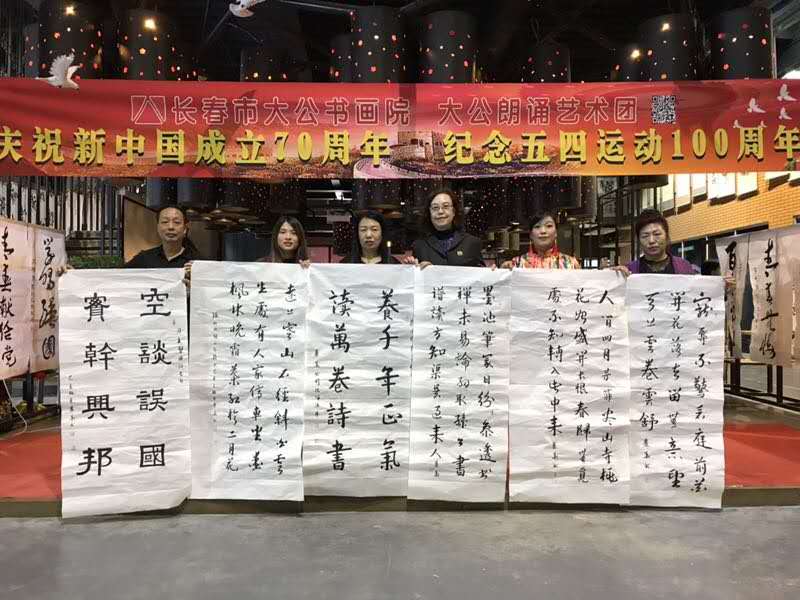 长春市大公书画院 大公朗诵艺术团
庆祝新中国成立70周年 纪念五四运动100周年
空談誤國
實幹興邦
遠上寒山石徑斜白雲
生處有人家停車坐愛
楓林晚霜葉紅於二月花
養千年正氣
讀萬卷詩書
墨池筆冢日紛紛參透書
禪未易論細取孫公書
譜讀方知渠是過來人
人間四月芳菲盡山寺桃
花始盛開長恨春歸無覓
處不知轉入此中來
寵辱不驚看庭前花
開花落去留無意望
天上雲卷雲舒
青春献给党